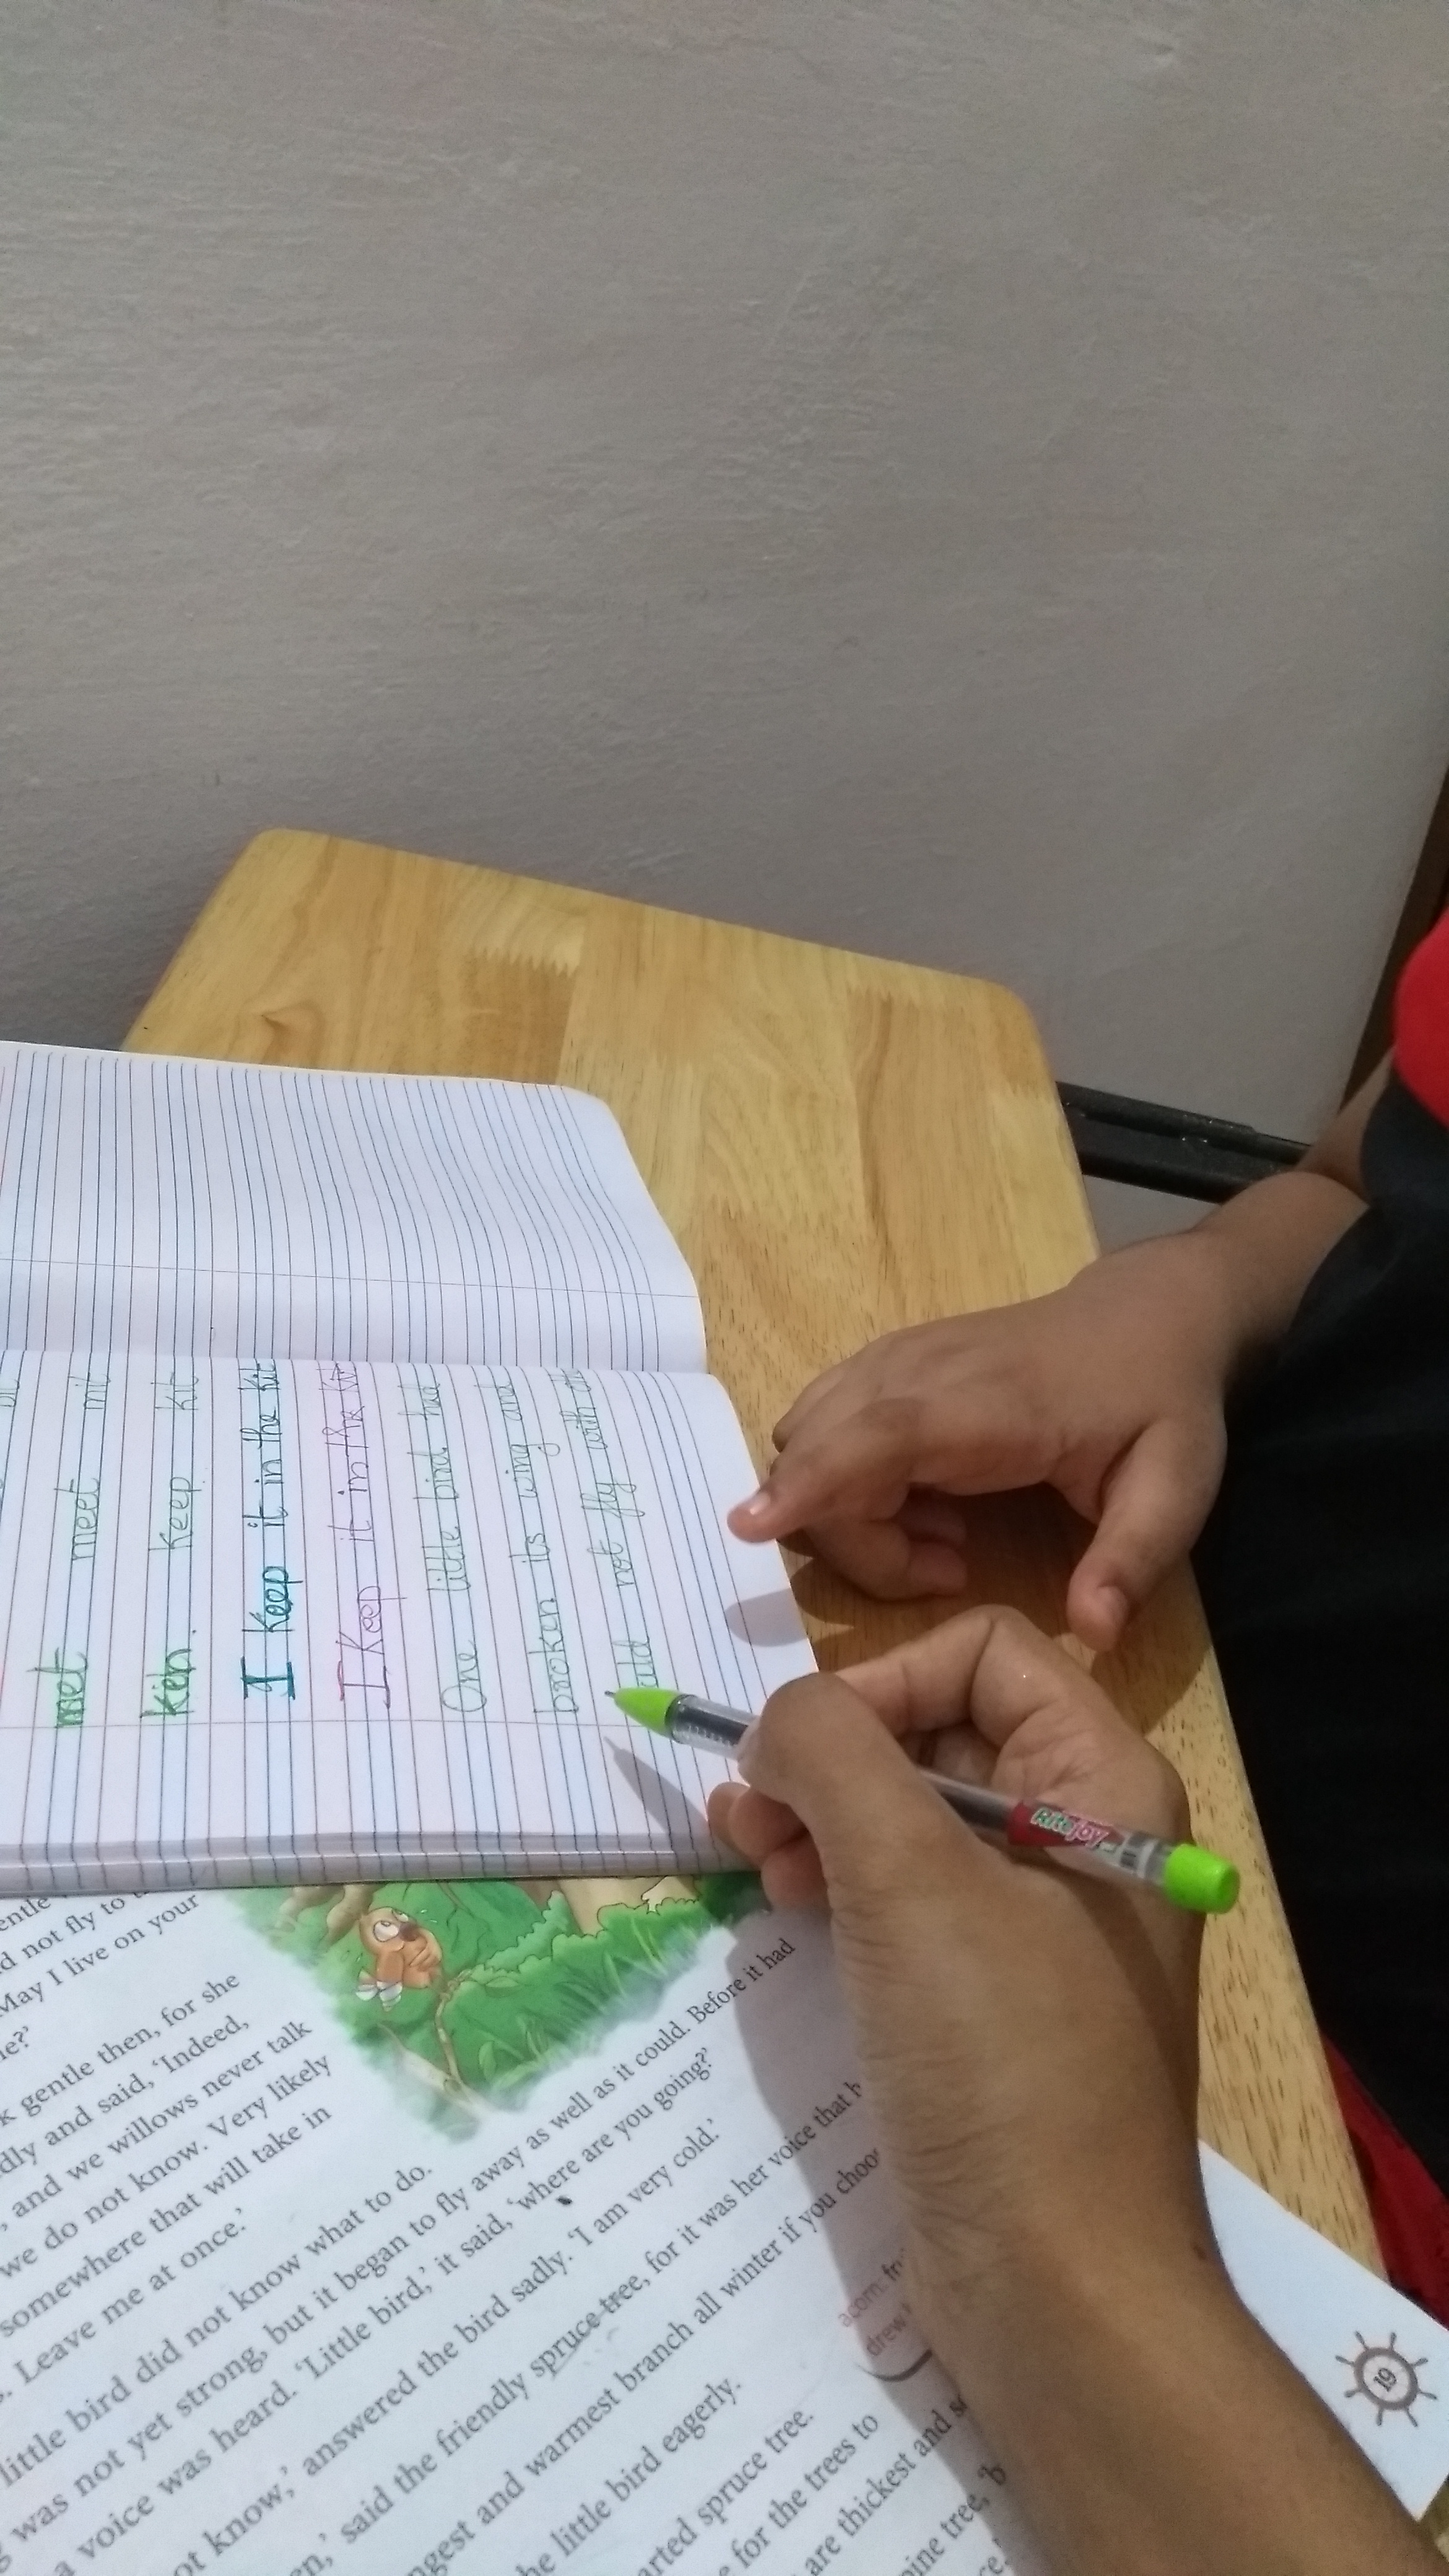 met meet mit
Ken. Keep Kit
I Keep it in the Kit
I Keep it in the Kit
One little bird had
broken its wing and
not fly with
Ritejoy
not fly to
May I live on your
gentle then, for she
and said, 'Indeed,
and we willows never talk
we do not know. Very likely
somewhere that will take in
Leave me at once.'
little bird did not know what to do.
was not yet strong, but it began to fly away as well as it could. Before it had
a voice was heard. 'Little bird,' it said, 'where are you going?'
know,' answered the bird sadly. 'I am very cold.'
said the friendly spruce-tree, for it was her voice that
and warmest branch all winter if you
little bird eagerly.
spruce tree.
for the trees to
are thickest and
pine tree,
acorn:
drew
19